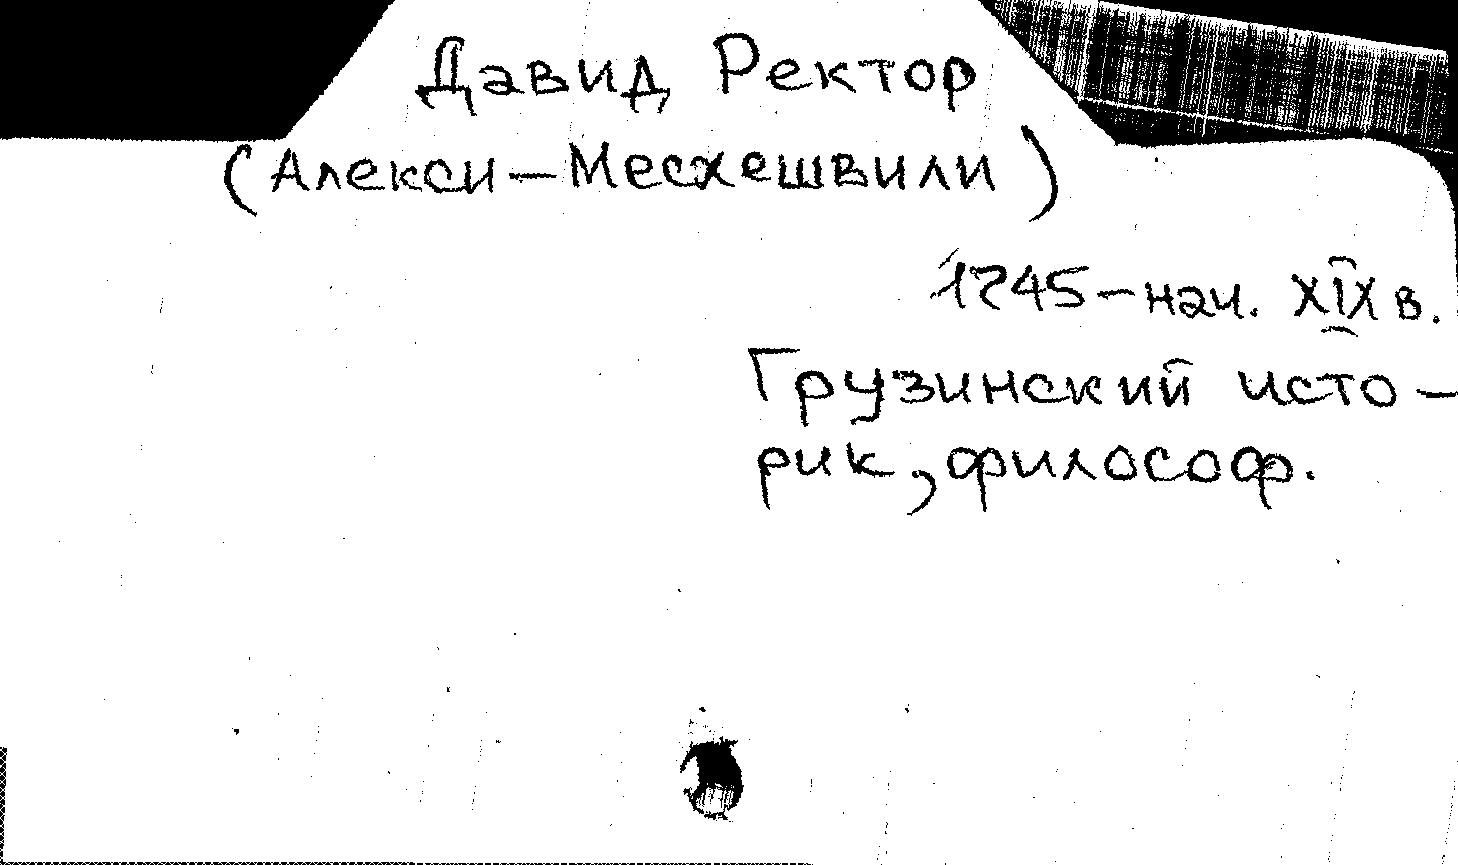 Давид Ректор
(Алекси-Месхешвили)
1745-нач. XIX в.
Грузинский исто-
рик, философ.